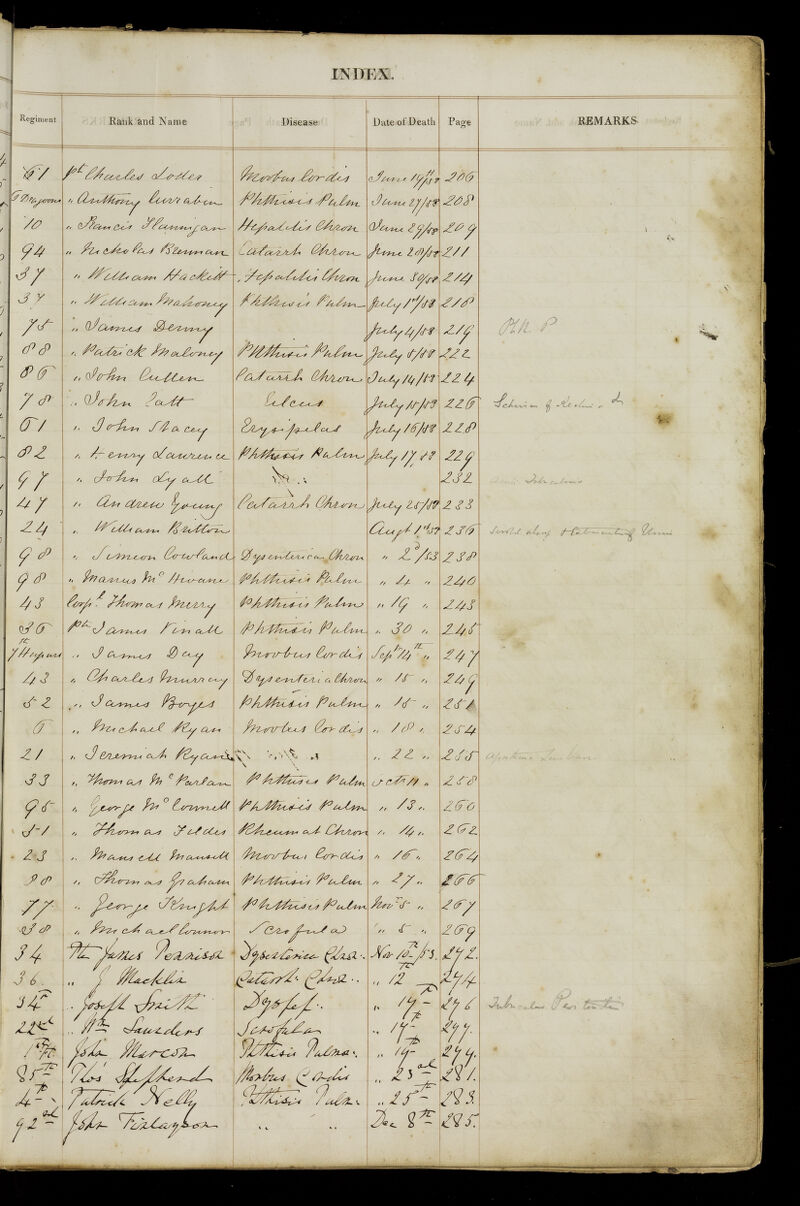 INDEX.
Regiment Rank and Name Disease Date of Death Page REMARKS
61 Pt Charles Morbus Cordis June 19th/58 206
6 Dragoons " Anthony Currabin Phthisis Pulm June 27/58 208
10 " Francis Flannigan Hepatitis Chron June 29/58 209
94 " Nickolas Brennan Catarrh Chron June 28/58 211
37 " William Hackitt Hepatitis Chron June 30/58 214
37 " William Mahoney Phthisis Pulm July 1st/58 218
75 " James Denny July 4/58 219
88 " Patrick Maloney Phthisis Pulm July 8/58 222
86 " John Cullen Catarrh Chron July 14/58 224
78 " John Catt Ulcus July 15/58 226
61 " John Stacey Erysipelas July 16/58 228
82 " Henry Lawrence Phthisis Pulm July 17/58 229
97 " John Lyall 232
47 " Andrew Young Catarrh Chron July 25/58 233
24 " William Britton Augt 1st/58 236
98 " Simeon Cowland Dysenterica Chron " 2d/58 238
98 " Manus Mc Phthisis Pulm " 4 " 240
43 Corpl. Thomas Merry Phthisis Pulm " 19 " 243
36 Pte James Vinall Phthisis Pulm " 30 " 245
7th Hussars " James Day Morbus Cordis Sept 14th " 247
43 " Charles Murray Dysenteria Chron " 15 " 249
52 " James Boyes Phthisis Pulm " 15 " 251
6 " Michael Ryan Morbus Cordis " 18 " 254
21 " Jeremiah Ryan " 22 " 255
33 " Thomas Mc Parlan Phthisis Pulm Oct 11 " 258
95 " George McConnell Phthisis Pulm " 13 " 260
51 " Thomas Fildes Rheumat Chron " 14 " 262
23 " Mansell Mansell Morbus Cordis " 16 " 264
88 " Thomas Graham Phthisis Pulm " 27 " 266
77 " George Knight Phthisis Pulm Novr 5 " 267
38 " Michael Connor Scrofula " 5 " 269
34 Pte James Dennison Dysenterica Chron. Nov 10th/58. 272.
36 " J Macklin Catarrh Chron. " 12th 274
34th " Joseph Smith Dyspep. " 14th 276
22nd " Wm Saunders Scrofula " 17th 277.
John Marcon Phthisis Pulmo. " 19th 279.
85th Thos Shepherd Morbus Cordis " 23rd 281.
4th Patrick Nelly Phthisis Pulm. " 25th 283.
92nd John Finlayson " " Dec 8th 285.